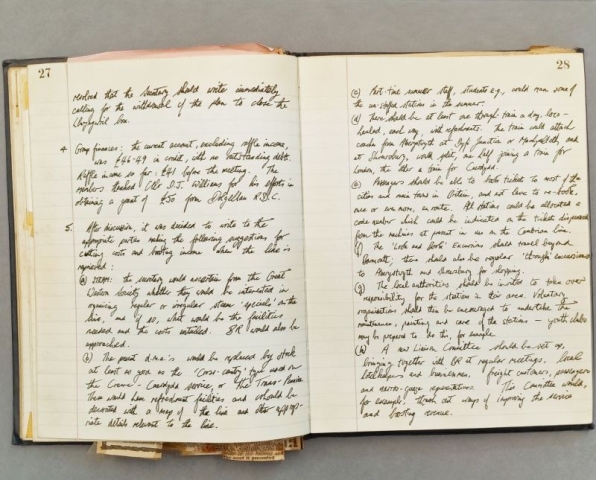 27
resolved that the Secretary should write immediately
calling for the withdrawal of the plan to close the
Llwyngwril box.
4 Group finances: the current account, excluding raffle income,
was £46-49 in credit, with no outstanding debts.
Raffle income so far: £41 before the meeting. The
members thanked Cllr D.J. Williams for his efforts in
obtaining a grant of £50 from Dolgellau R.D.C.
5. After discussion, it was decided to write to the
appropriate parties making the following suggestions for
cutting costs and boosting income when the line is
reprieved:
(a) STEAM: the secretary would ascertain from the Great
Western Society whether they would be interested in
organising regular or irregular steam 'specials' on the
line, and if so, what would be the facilities
needed and the costs entailed. BR would also be
approached.
(b) The present d.m.u.'s would be replaced by stock
at least as good as the 'Cross-country' type used on
the Crewe - Cardiff service, or the Trans-Pennine
These would have refreshment facilities and should be
decorated with a map of the line and other approp-
riate details relevant to the line.
28
(c) Part-time summer staff, students e.g., could man some of
the un-staffed stations in the summer.
(d) There should be at least one through-train a day, loco-
hauled, each way, with refreshments. The train could attach
coaches from Aberystwyth at Dyfi Junction or Machynlleth, and
at Shrewsbury, could split, one half joining a train for
London, the other a train for
(e) Passengers should be able to book tickets to most of the
cities and main towns in Britain, and not have to re-book,
once or even more, en route. All stations could be allocated a
code number which could be indicated on the ticket dispensed
from the machines at present in use on the Cambrian line.
(f) The Excursions should travel beyond
Barmouth; there should also be regular 'through' excursions
to Aberystwyth and Shrewsbury for shopping.
(g) The local authorities should be invited to take over
responsibility for the stations in their area. Voluntary
organisations should then be encouraged to undertake the
maintenance, painting and care of the stations - youth clubs
may be prepared to do this, for example.
(h) A new Liaison Committee should be set up,
bringing together with BR at regular meetings. Local
hotelkeepers and businessmen, freight customers, passengers
and representatives. This Committee would,
for example, thrash out ways of improving the service
and boosting revenue.